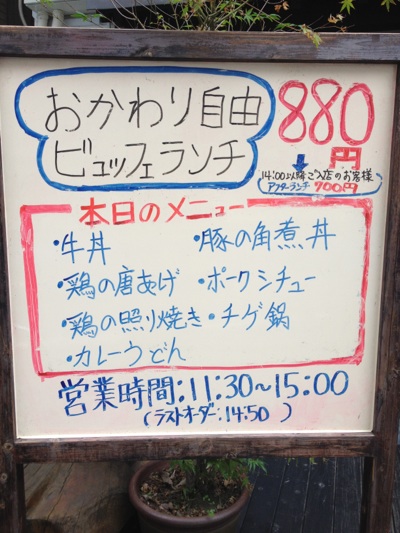 おかわり自由
ビュッフェランチ
880円
14:00以降ご入店のお客様
アフターランチ 700円
本日のメニュー
・牛丼
・豚の角煮丼
・鶏の唐あげ
・ポークシチュー
・鶏の照り焼き
・チゲ鍋
・カレーうどん
営業時間:11:30~15:00
(ラストオーダー:14:50 )